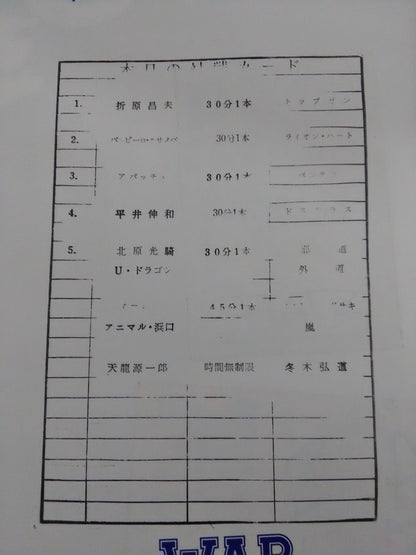 本日の対戦カード
1. 折原昌夫 30分1本 トップガン
2. 30分1本 ライオン・ハート
3. アパッチェ 30分1本
4. 平井伸和 30分1本
5. 北原光騎 30分1本 邪道
U・ドラゴン 外道
45分1本
アニマル・浜口 嵐
天龍源一郎 時間無制限 冬木弘道
WAR